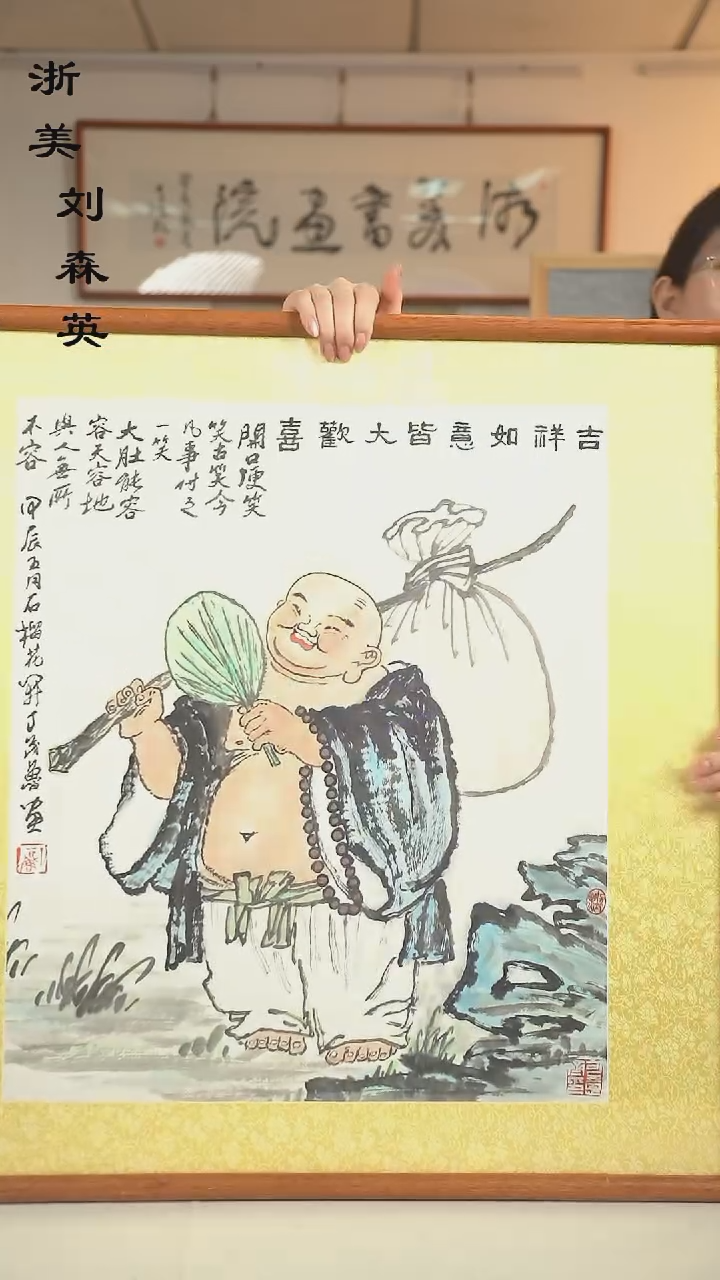 浙美刘森英
游美書画院
吉祥如意皆大歡喜
開口便笑
笑古笑今
凡事付之
一笑
大肚能容
容天容地
與人無所
不容
甲辰五月石榴花開丁茂魯畫